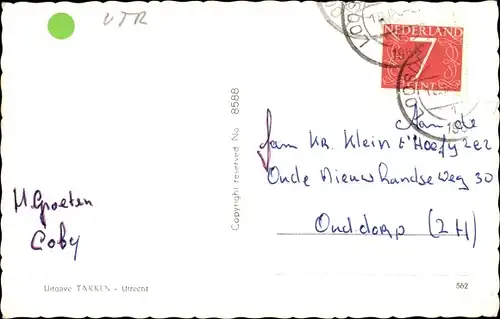 UTR
NEDERLAND
7
CENT
LOOS
Aan de
fam KR. Klein t'Hoefyzer
Oude Nieuwlandseweg 30
Ouddorp (ZH)
M. Groeten
Coby
Copyright reserved No 8588
Uitgave TAKKEN - Utrecht
562